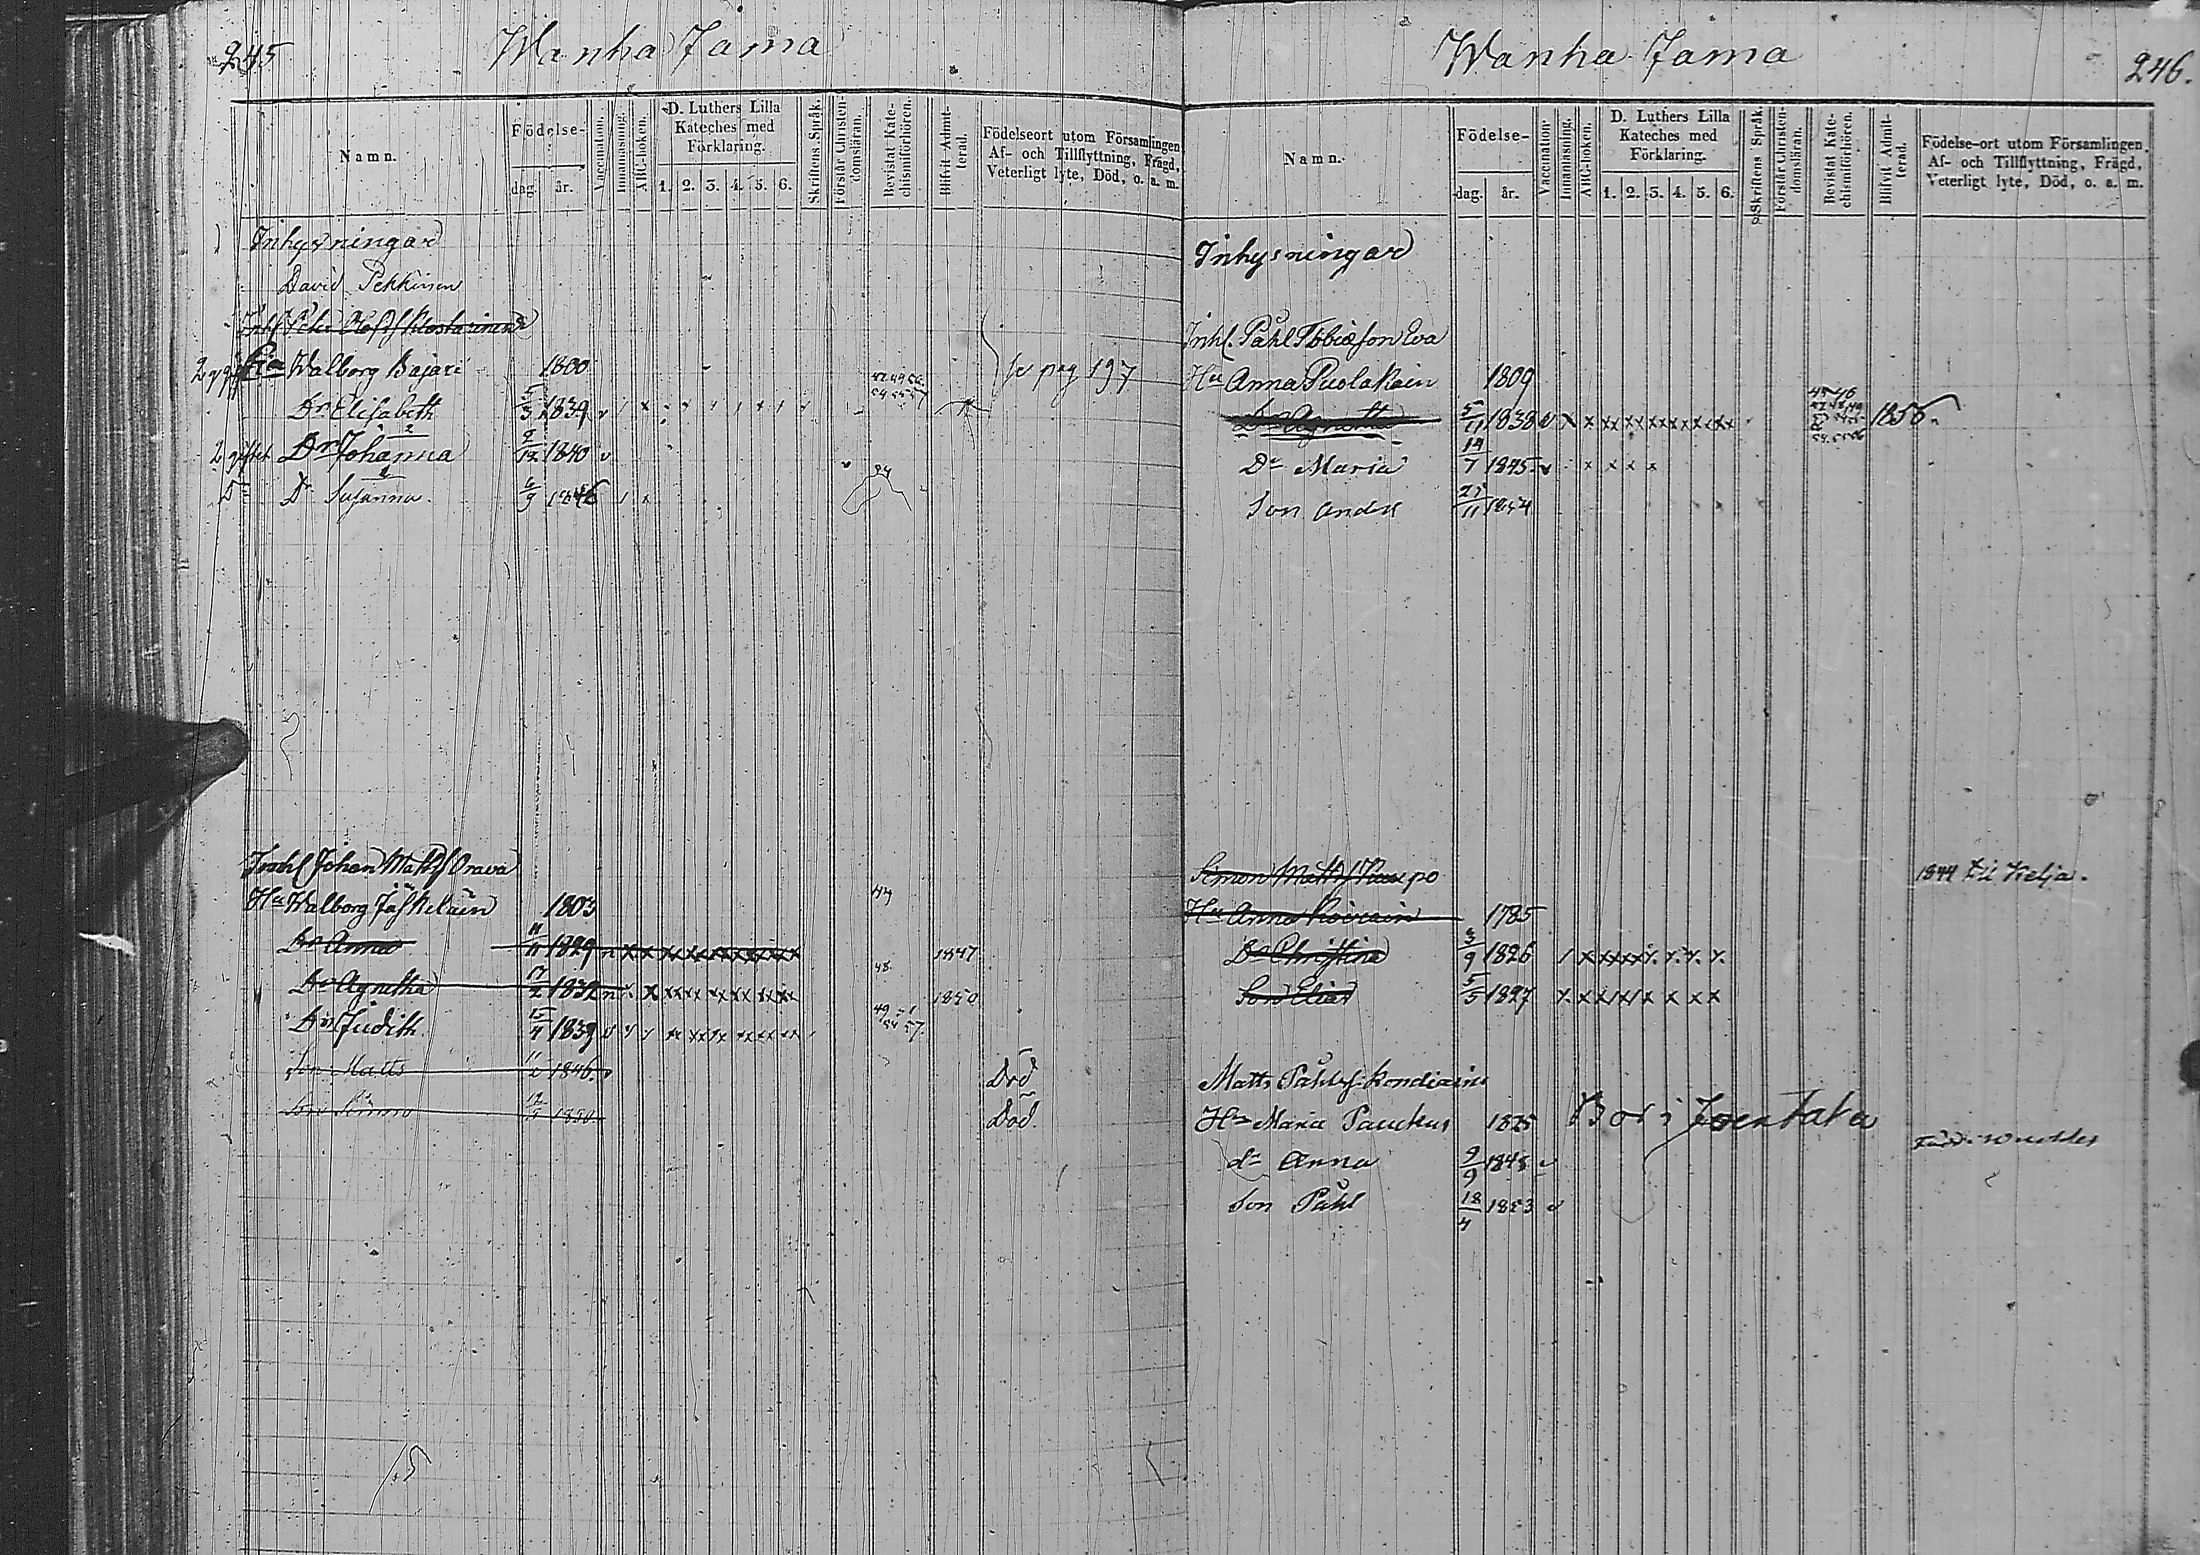 245
Wanha Jama
Namn.
Födelse-
dag. år.
Vaccination.
Innanläsning.
ABC-boken.
D. Luthers Lilla
Kateches med
Förklaring.
1. 2. 3. 4. 5. 6.
Skriftens Språk.
Förstår Christen-
domsläran.
Bevistat Kate-
chismiförhören.
Blifvit Admit-
terad.
Födelseort utom Församlingen
Af- och Tillflyttning, Frägd,
Veterligt lyte, Död, o. a. m.
Inhysningar
David Pekkinen
Walborg Bajari 1800 se pag 197
Dr Elisabeth 5/3 1839
2 Dr Johanna 2/12 1840
Dr Susanna 6/9 1846
Inhs Johan Matts Orava
Hu Walborg Jäskeläin 1803 44
Dr Anna 11/11 1829 n x x 1847
Dr Agnetha 17/2 1832 n 48 1850
Dr Judith 15/4 1839
Son Matts 1846 Död
Son 12 1850 Död
Wanha Jama
246.
Namn.
Födelse-
dag. år.
Vaccination.
Innanläsning.
ABC-boken.
D. Luthers Lilla
Kateches med
Förklaring.
1. 2. 3. 4. 5. 6.
Skriftens Språk.
Förstår Christen-
domsläran.
Bevistat Kate-
chismiförhören.
Blifvit Admit-
terad.
Födelse-ort utom Församlingen.
Af- och Tillflyttning, Frägd,
Veterligt lyte, Död, o. a. m.
Inhysningar
Inhs. Påhl Tobiæson Eva
Hu Anna Puolakain 1809
Dr Agnetha 5/11 1838 1856
Dr Maria 14/7 1845
Son Anders 27/11 1854
Simon Matts 1844 till Kelja.
Hu Anna Koirain 1785
Dr Christina 3/9 1826
Son Elias 5/5 1827
Matts Påhls. Kondiain
Hu Maria Paukku 1825 Bor i Joentaka
dr Anna 9/9 1848
Son Påhl 18/4 1853